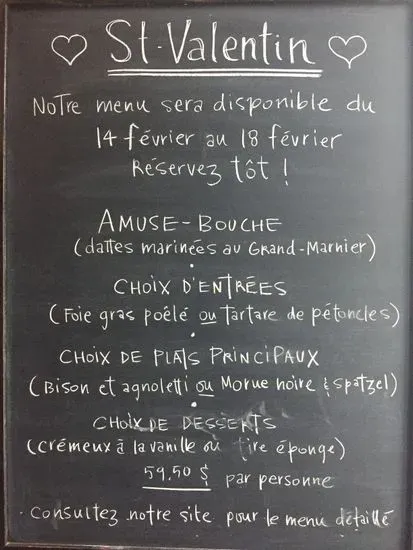 ♡ St-Valentin ♡
Notre menu sera disponible du
14 février au 18 février
Réservez tôt !
AMUSE-BOUCHE
(dattes marinées au Grand-Marnier)
CHOIX D'ENTRÉES
(Foie gras poêlé ou tartare de pétoncles)
CHOIX DE PLATS PRINCIPAUX
(Bison et agnoletti ou Morue noire & spatzel)
CHOIX DE DESSERTS
(crémeux à la vanille ou tire éponge)
59,50 $ par personne
Consultez notre site pour le menu détaillé